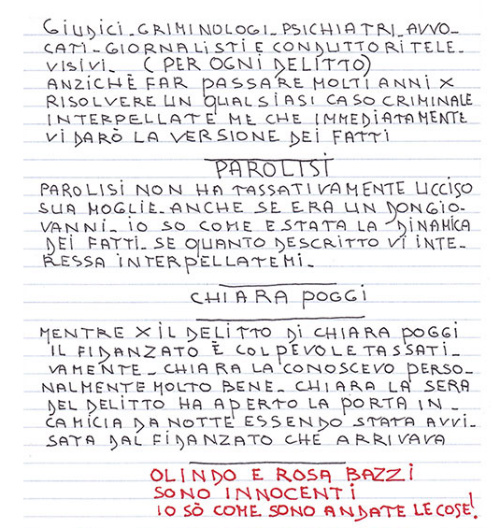 GIUDICI - CRIMINOLOGI - PSICHIATRI - AVVO-
CATI - GIORNALISTI E CONDUTTORI TELE-
VISIVI - (PER OGNI DELITTO)
ANZICHÈ FAR PASSARE MOLTI ANNI X
RISOLVERE UN QUALSIASI CASO CRIMINALE
INTERPELLATE ME CHE IMMEDIATAMENTE
VI DARÒ LA VERSIONE DEI FATTI
PAROLISI
PAROLISI NON HA TASSATIVAMENTE UCCISO
SUA MOGLIE - ANCHE SE ERA UN DONGIO-
VANNI - IO SO COME E STATA LA DINAMICA
DEI FATTI - SE QUANTO DESCRITTO VI INTE-
RESSA INTERPELLATEMI -
CHIARA POGGI
MENTRE X IL DELITTO DI CHIARA POGGI
IL FIDANZATO È COLPEVOLE TASSATI-
VAMENTE - CHIARA LA CONOSCEVO PERSO-
NALMENTE MOLTO BENE - CHIARA LA SERA
DEL DELITTO HA APERTO LA PORTA IN
CAMICIA DA NOTTE ESSENDO STATA AVVI-
SATA DAL FIDANZATO CHE ARRIVAVA
OLINDO E ROSA BAZZI
SONO INNOCENTI
IO SÒ COME SONO ANDATE LE COSE!